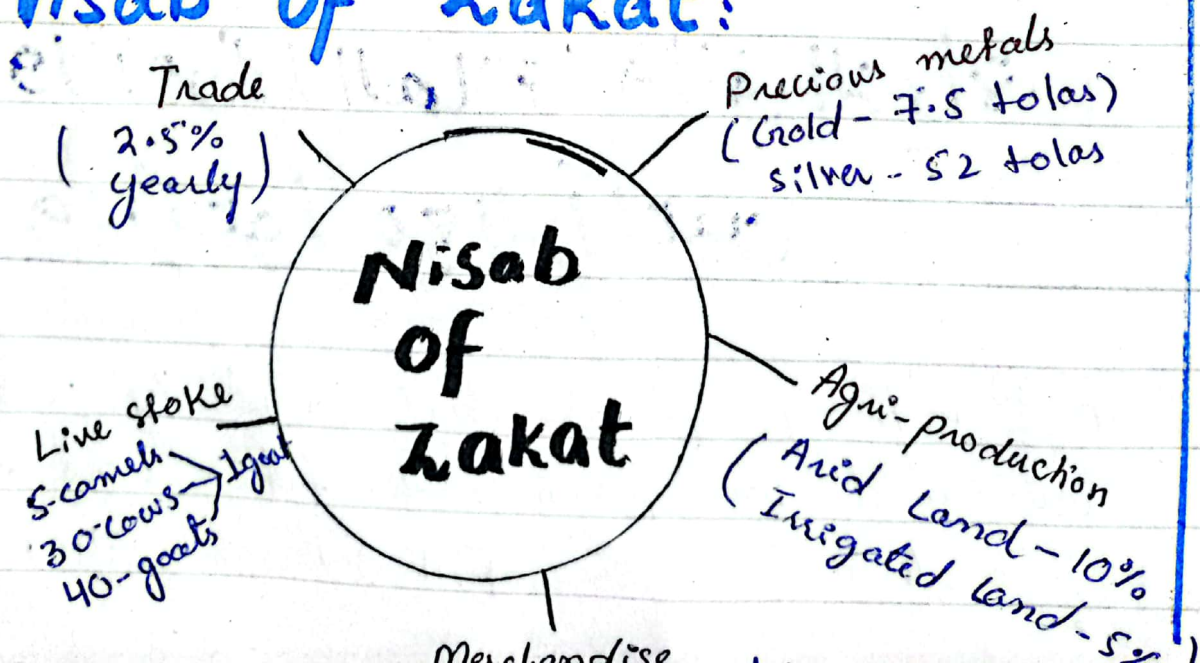 Nisab of Zakat:
Trade
( 2.5%
yearly )
Precious metals
( Gold - 7.5 tolas)
silver - 52 tolas
Nisab
of
Zakat
Live stoke
5-camels
30-cows
40-goats
1goat
Agri-production
( Arid Land - 10%
Irrigated Land - 5%
Merchandise